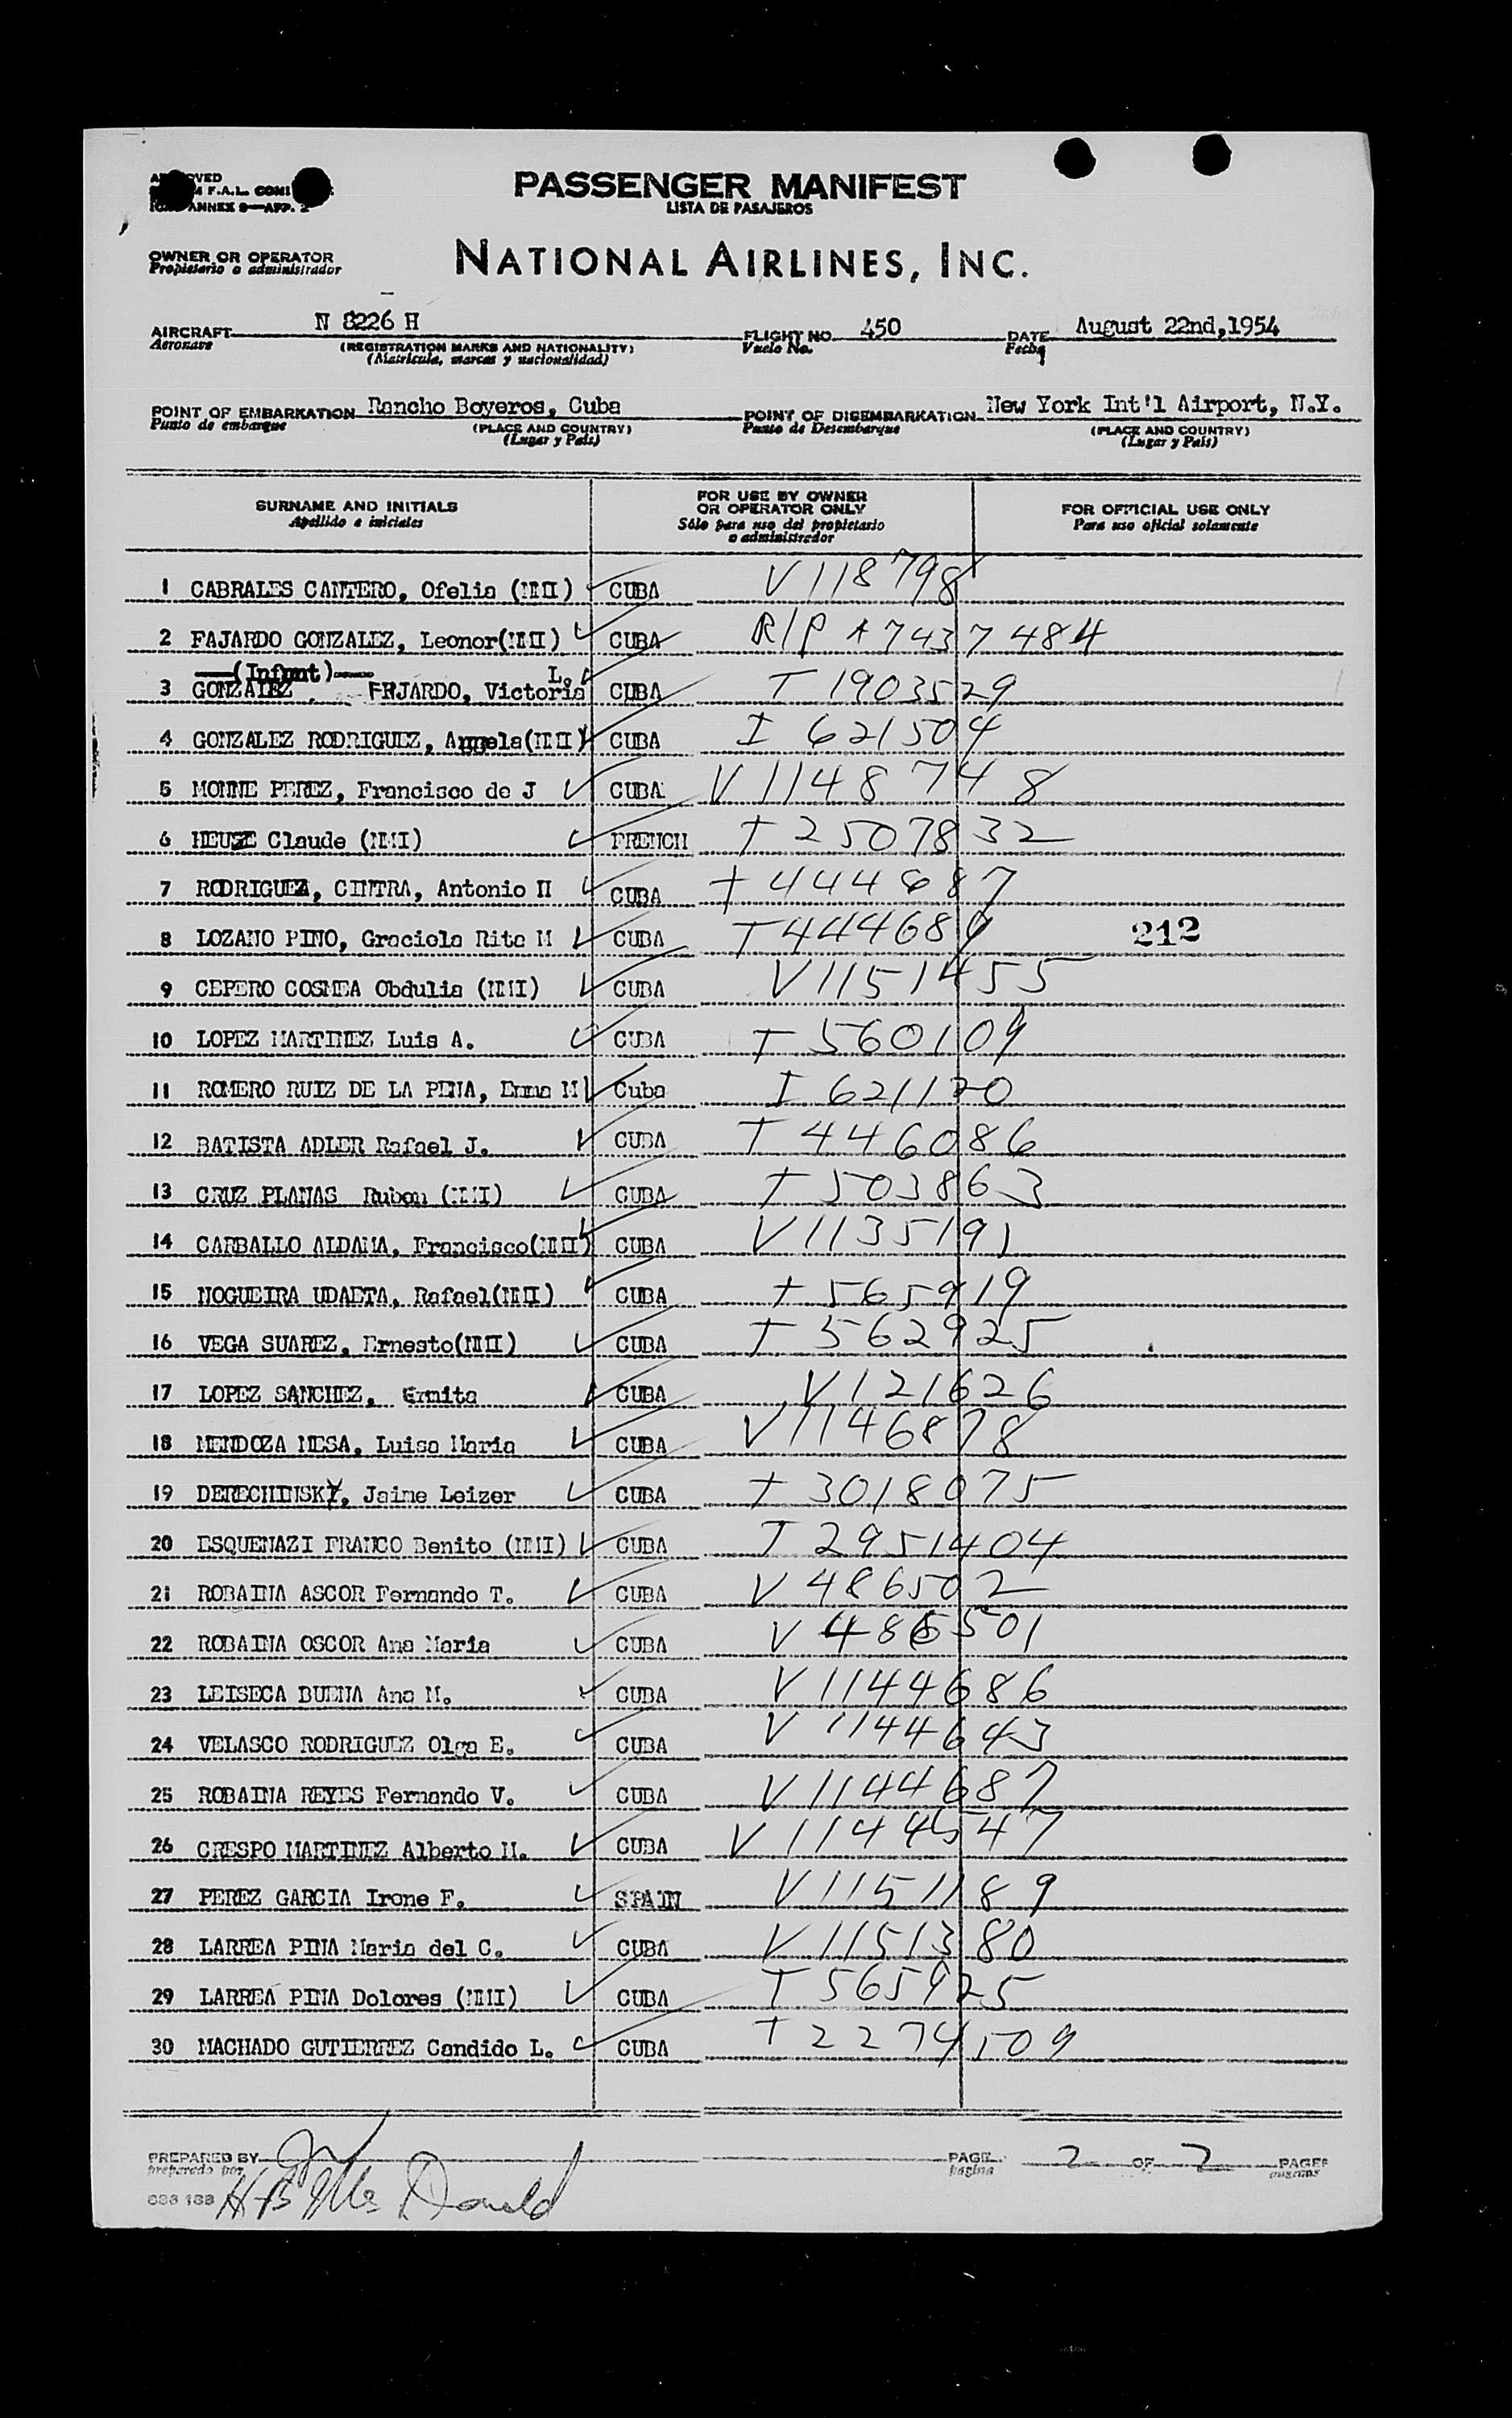 PASSENGER MANIFEST
LISTA DE PASAJEROS
F.A.L.
ANNEX 9—APP. 2
OWNER OR OPERATOR
Propietario o administrador
NATIONAL AIRLINES, INC.
AIRCRAFT N 8226 H FLIGHT NO. 450 DATE August 22nd,1954
Aeronave (REGISTRATION MARKS AND NATIONALITY) Vuelo No. Fecha
(Matricula, marcas y nacionalidad)
POINT OF EMBARKATION Rancho Boyeros, Cuba POINT OF DISEMBARKATION New York Int'l Airport, N.Y.
Punto de embarque (PLACE AND COUNTRY) Punto de Desembarque (PLACE AND COUNTRY)
(Lugar y País) (Lugar y País)
SURNAME AND INITIALS FOR USE BY OWNER OR OPERATOR ONLY FOR OFFICIAL USE ONLY
Apellido e iniciales Sólo para uso del propietario o administrador Para uso oficial solamente
1 CABRALES CANTERO, Ofelia (NMI) CUBA V118798
2 FAJARDO GONZALEZ, Leonor(NMI) CUBA R/P A7437484
(Infant) L.
3 GONZALEZ FEJARDO, Victoria CUBA T 1903529
4 GONZALEZ RODRIGUEZ, Angela(NMI) CUBA I 621504
5 MONNE PEREZ, Francisco de J CUBA V1148748
6 HEUZE Claude (NMI) FRENCH T 2507832
7 RODRIGUEZ, CINTRA, Antonio H CUBA T 444687
8 LOZANO PINO, Graciela Rita M CUBA T444689 212
9 CEPERO COSMEA Obdulia (NMI) CUBA V1151455
10 LOPEZ MARTINEZ Luis A. CUBA T 560109
11 ROMERO RUIZ DE LA PENA, Emma M Cuba I 621120
12 BATISTA ADLER Rafael J. CUBA T 446086
13 CRUZ PLANAS Ruben (NMI) CUBA T 503863
14 CARBALLO ALDAMA, Francisco(NMI) CUBA V1135191
15 NOGUEIRA UDAETA, Rafael(NMI) CUBA T 565919
16 VEGA SUAREZ, Ernesto(NMI) CUBA T 562925
17 LOPEZ SANCHEZ, Ermita CUBA V121626
18 MENDOZA MESA, Luisa Maria CUBA V1146878
19 DERECHINSKY, Jaime Leizer CUBA T 3018075
20 ESQUENAZI FRANCO Benito (NMI) CUBA T 2951404
21 ROBAINA ASCOR Fernando T. CUBA V 486502
22 ROBAINA OSCOR Ana Maria CUBA V 486501
23 LEISECA BUENA Ana M. CUBA V 1144686
24 VELASCO RODRIGUEZ Olga E. CUBA V 1144643
25 ROBAINA REYES Fernando V. CUBA V 1144687
26 CRESPO MARTINEZ Alberto M. CUBA V 1144547
27 PEREZ GARCIA Irene F. SPAIN V1151189
28 LARREA PINA Maria del C. CUBA V1151380
29 LARREA PINA Dolores (NMI) CUBA T 565925
30 MACHADO GUTIERREZ Candido L. CUBA T 2274509
PREPARED BY PAGE 2 OF 2 PAGES
preparado por página
HB Mc Donald